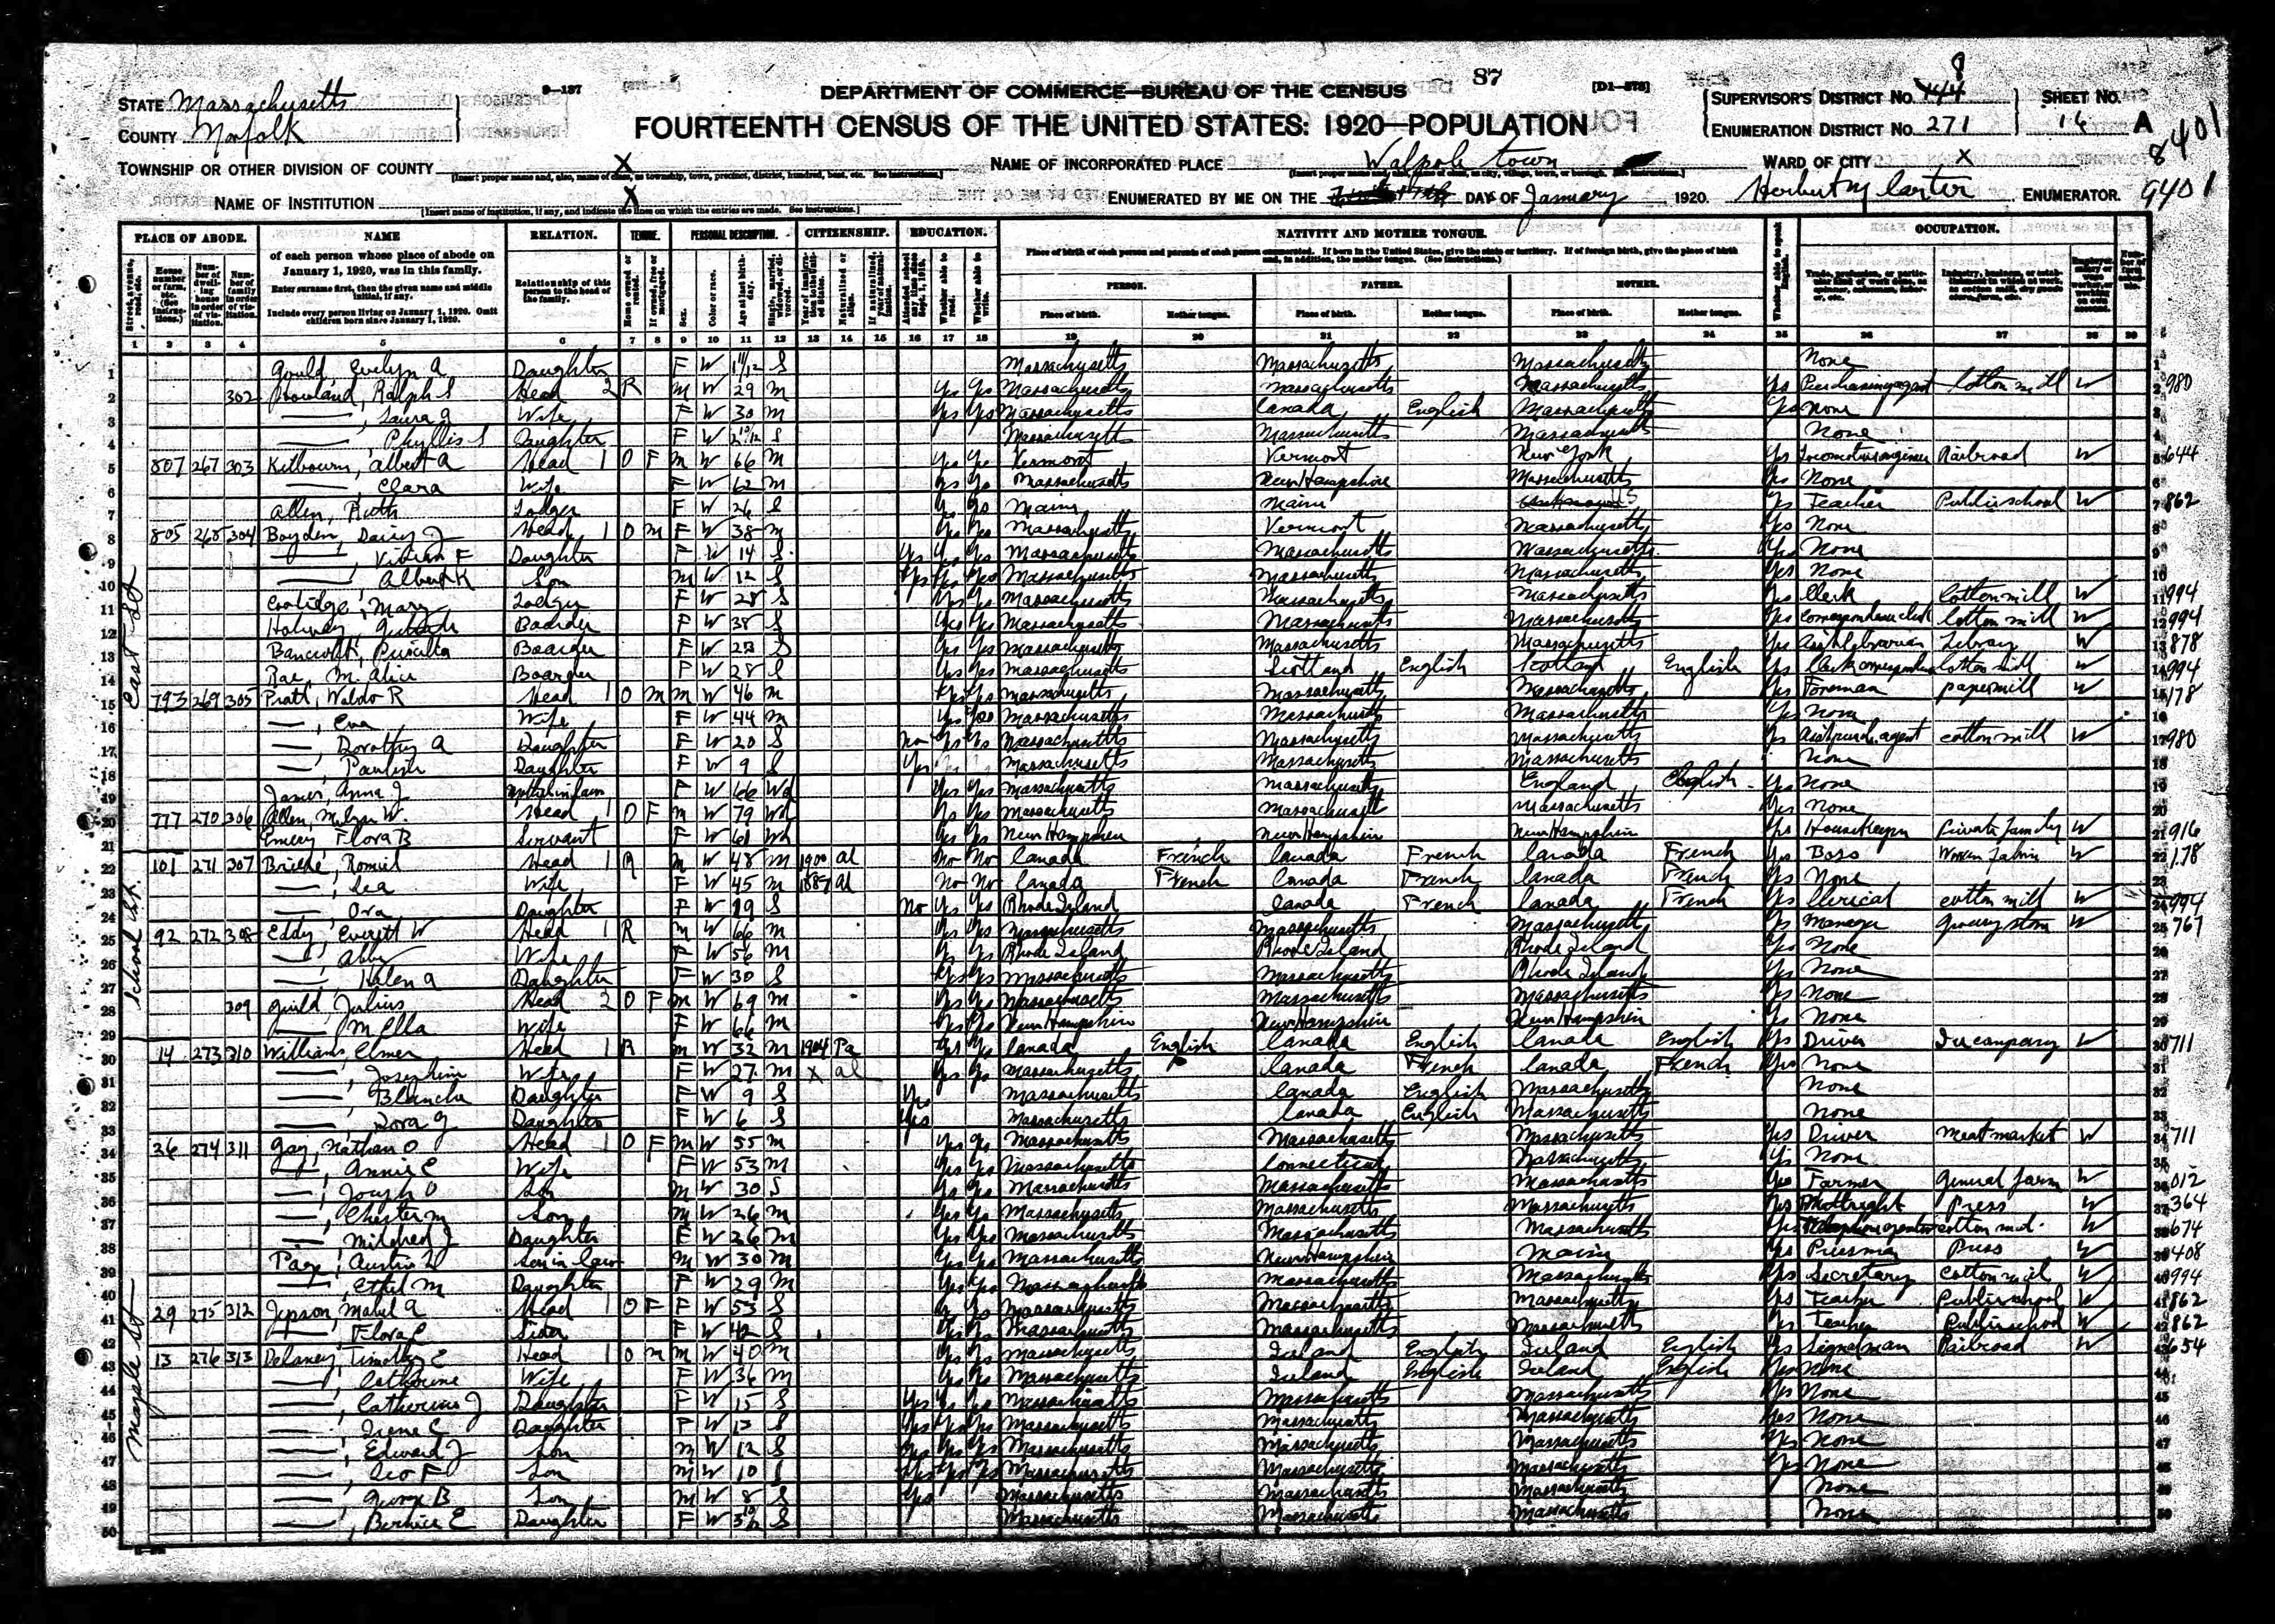 87
9-137
[D1-578]
DEPARTMENT OF COMMERCE—BUREAU OF THE CENSUS
FOURTEENTH CENSUS OF THE UNITED STATES: 1920—POPULATION
STATE Massachusetts
COUNTY Norfolk
SUPERVISOR'S DISTRICT NO. 8
ENUMERATION DISTRICT NO. 271
SHEET NO. 16 A
8401
TOWNSHIP OR OTHER DIVISION OF COUNTY X
NAME OF INCORPORATED PLACE Walpole town
WARD OF CITY X
NAME OF INSTITUTION X
ENUMERATED BY ME ON THE DAY OF January 1920. Herbert M Carter ENUMERATOR.
9401
PLACE OF ABODE. NAME RELATION. TENURE. PERSONAL DESCRIPTION. CITIZENSHIP. EDUCATION. NATIVITY AND MOTHER TONGUE. OCCUPATION.
of each person whose place of abode on January 1, 1920, was in this family.
Enter surname first, then the given name and middle initial, if any.
Include every person living on January 1, 1920. Omit children born since January 1, 1920.
Relationship of this person to the head of the family.
PERSON. FATHER. MOTHER.
Place of birth. Mother tongue. Place of birth. Mother tongue. Place of birth. Mother tongue.
1 2 3 4 5 6 7 8 9 10 11 12 13 14 15 16 17 18 19 20 21 22 23 24 25 26 27 28 29
East St
1 Gould, Evelyn A Daughter F W 11/12 S Massachusetts Massachusetts Massachusetts None
2 302 Ralph S Head 2 R M W 29 M Yes Yes Massachusetts Massachusetts Massachusetts Yes Purchasing agent Cotton mill W 980
3 —, Laura G Wife F W 30 M Yes Yes Massachusetts Canada English Massachusetts Yes None
4 —, Phyllis S Daughter F W 2 10/12 S Massachusetts Massachusetts Massachusetts None
5 807 267 303 Kilbourn, Albert A Head 1 O F M W 66 M Yes Yes Vermont Vermont New York Yes Locomotive engineer Railroad W 644
6 —, Clara Wife F W 62 M Yes Yes Massachusetts New Hampshire Massachusetts Yes None
7 Allen, Ruth Lodger F W 26 S Yes Yes Maine Maine Yes Teacher Public school W 862
8 805 268 304 Boyden, Daisy J Head 1 O M F W 38 M Yes Yes Massachusetts Vermont Massachusetts Yes None
9 —, Vivian F Daughter F W 14 S Yes Yes Yes Massachusetts Massachusetts Massachusetts Yes None
10 —, Albert K Son M W 12 S Yes Yes Yes Massachusetts Massachusetts Massachusetts Yes None
11 Coolidge, Mary Lodger F W 28 S Yes Yes Massachusetts Massachusetts Massachusetts Yes Clerk Cotton mill W 994
12 Boarder F W 38 S Yes Yes Massachusetts Massachusetts Massachusetts Yes Cotton mill W 994
13 Bancroft, Priscilla Boarder F W 23 S Yes Yes Massachusetts Massachusetts Massachusetts Yes Asst librarian Library W 878
14 Rae, M. Alice Boarder F W 28 S Yes Yes Massachusetts Scotland English Scotland English Yes Cotton mill W 994
15 793 269 305 Pratt, Waldo R Head 1 O M M W 46 M Yes Yes Massachusetts Massachusetts Massachusetts Yes Foreman paper mill W 178
16 —, Eva Wife F W 44 M Yes Yes Massachusetts Massachusetts Massachusetts Yes None
17 —, Dorothy A Daughter F W 20 S No Yes Yes Massachusetts Massachusetts Massachusetts Yes Asst purch. agent cotton mill W 980
18 —, Pauline Daughter F W 9 S Yes Massachusetts Massachusetts Massachusetts None
19 James, Anna J Mother in law F W 66 Wd Yes Yes Massachusetts Massachusetts England English Yes None
20 777 270 306 Allen, W. Head 1 O F M W 79 Wd Yes Yes Massachusetts Massachusetts Massachusetts Yes None
21 Emery, Flora B Servant F W 61 Wd Yes Yes New Hampshire New Hampshire New Hampshire Yes Housekeeper Private family W 916
School St.
22 101 271 307 Head 1 R M W 48 M 1900 Al No No Canada French Canada French Canada French Yes Boss Woolen fabric W 178
23 —, Lea Wife F W 45 M 1887 Al No No Canada French Canada French Canada French Yes None
24 —, Ora Daughter F W 19 S No Yes Yes Rhode Island Canada French Canada French Yes Clerical cotton mill W 994
25 92 272 308 Eddy, Everett W Head 1 R M W 66 M Yes Yes Massachusetts Massachusetts Massachusetts Yes Manager Grocery store W 767
26 —, Abby Wife F W 56 M Yes Yes Rhode Island Rhode Island Rhode Island Yes None
27 —, Helen A Daughter F W 30 S Yes Yes Massachusetts Massachusetts Rhode Island Yes None
28 309 Guild, Julius Head 2 O F M W 69 M Yes Yes Massachusetts Massachusetts Massachusetts Yes None
29 —, M Ella Wife F W 66 M Yes Yes New Hampshire New Hampshire New Hampshire Yes None
30 14 273 310 Williams, Elmer Head 1 R M W 32 M 1904 Pa Yes Yes Canada English Canada English Canada English Yes Driver Ice company W 711
31 —, Josephine Wife F W 27 M X Al Yes Yes Massachusetts Canada French Canada French Yes None
32 —, Blanche Daughter F W 9 S Yes Massachusetts Canada English Massachusetts None
33 —, Dora G Daughter F W 6 S Yes Massachusetts Canada English Massachusetts None
Maple St
34 36 274 311 Gay, Nathan O Head 1 O F M W 55 M Yes Yes Massachusetts Massachusetts Massachusetts Yes Driver Meat market W 711
35 —, Annie E Wife F W 53 M Yes Yes Massachusetts Connecticut Massachusetts Yes None
36 —, Joseph O Son M W 30 S Yes Yes Massachusetts Massachusetts Massachusetts Yes Farmer General farm W 012
37 —, Chester M Son M W 26 M Yes Yes Massachusetts Massachusetts Massachusetts Yes Press W 364
38 —, Mildred J Daughter F W 26 M Yes Yes Massachusetts Massachusetts Massachusetts Yes Telephone operator cotton mill W 674
39 Page, Austin D Son in law M W 30 M Yes Yes Massachusetts New Hampshire Maine Yes Pressman Press W 408
40 —, Ethel M Daughter F W 29 M Yes Yes Massachusetts Massachusetts Massachusetts Yes Secretary Cotton mill W 994
41 29 275 312 Jepson, Mabel A Head 1 O F F W 53 S Yes Yes Massachusetts Massachusetts Massachusetts Yes Teacher Public school W 862
42 —, Flora E Sister F W 42 S Yes Yes Massachusetts Massachusetts Massachusetts Yes Teacher Public school W 862
43 13 276 313 Delaney, Timothy E Head 1 O M M W 40 M Yes Yes Massachusetts Ireland English Ireland English Yes Signalman Railroad W 654
44 —, Catherine Wife F W 36 M Yes Yes Massachusetts Ireland English Ireland English Yes None
45 —, Catherine J Daughter F W 15 S Yes Yes Yes Massachusetts Massachusetts Massachusetts Yes None
46 —, Irene C Daughter F W 13 S Yes Yes Yes Massachusetts Massachusetts Massachusetts Yes None
47 —, Edward J Son M W 12 S Yes Yes Yes Massachusetts Massachusetts Massachusetts Yes None
48 —, Leo F Son M W 10 S Yes Yes Yes Massachusetts Massachusetts Massachusetts Yes None
49 —, George B Son M W 8 S Yes Massachusetts Massachusetts Massachusetts None
50 —, Bernice E Daughter F W 3 10/12 S Massachusetts Massachusetts Massachusetts None